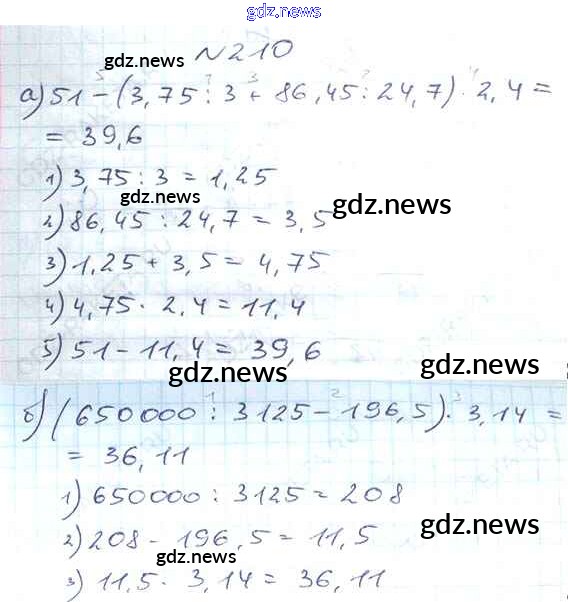 gdz.news
gdz.news
№210
а) 51 - (3,75 : 3 + 86,45 : 24,7) · 2,4 =
= 39,6
1) 3,75 : 3 = 1,25
gdz.news
gdz.news
2) 86,45 : 24,7 = 3,5
3) 1,25 + 3,5 = 4,75
4) 4,75 · 2,4 = 11,4
5) 51 - 11,4 = 39,6
gdz.news
gdz.news
б) (650000 : 3125 - 196,5) · 3,14 =
= 36,11
1) 650000 : 3125 = 208
gdz.news
2) 208 - 196,5 = 11,5
gdz.news
3) 11,5 · 3,14 = 36,11